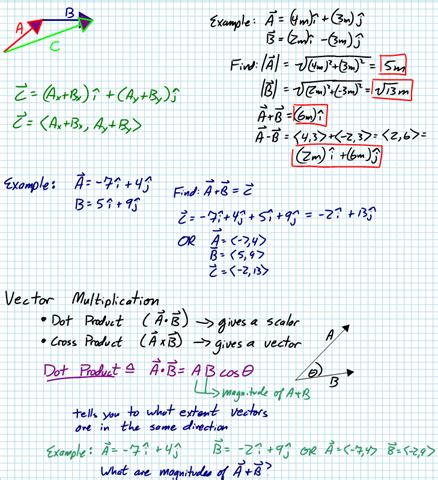 A⃗ B⃗ C⃗
C⃗ = (Ax+Bx) î + (Ay+By) ĵ
C⃗ = <Ax+Bx, Ay+By>
Example: A⃗ = (4m)î + (3m)ĵ
B⃗ = (2m)î - (3m)ĵ
Find: |A⃗| = √(4m)²+(3m)² = 5m
|B⃗| = √(2m)²+(-3m)² = √13 m
A⃗+B⃗ = (6m)î
A⃗-B⃗ = <4,3> + <-2,3> = <2,6> =
(2m)î + (6m)ĵ
Example: A⃗ = -7î + 4ĵ
B = 5î + 9ĵ
Find: A⃗+B⃗ = C⃗
C⃗ = -7î + 4ĵ + 5î + 9ĵ = -2î + 13ĵ
OR A⃗ = <-7,4>
B⃗ = <5,9>
C⃗ = <-2,13>
Vector Multiplication
• Dot Product (A⃗·B⃗) → gives a scalar
• Cross Product (A⃗×B⃗) → gives a vector
Dot Product ≙ A⃗·B⃗ = A B cosθ
magnitude of A+B
A θ B
tells you to what extent vectors
are in the same direction
Example: A⃗ = -7î + 4ĵ B⃗ = -2î + 9ĵ OR A⃗ = <-7,4> B⃗ = <-2,9>
What are magnitudes of A⃗+B⃗?